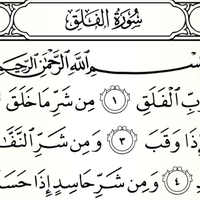 سُورَةُ الْفَلَقِ
بِسْمِ ٱللَّهِ ٱلرَّحْمَٰنِ ٱلرَّحِيمِ
ٱلْفَلَقِ ١ مِن شَرِّ مَا خَلَقَ
إِذَا وَقَبَ ٣ وَمِن شَرِّ
٤ وَمِن شَرِّ حَاسِدٍ إِذَا